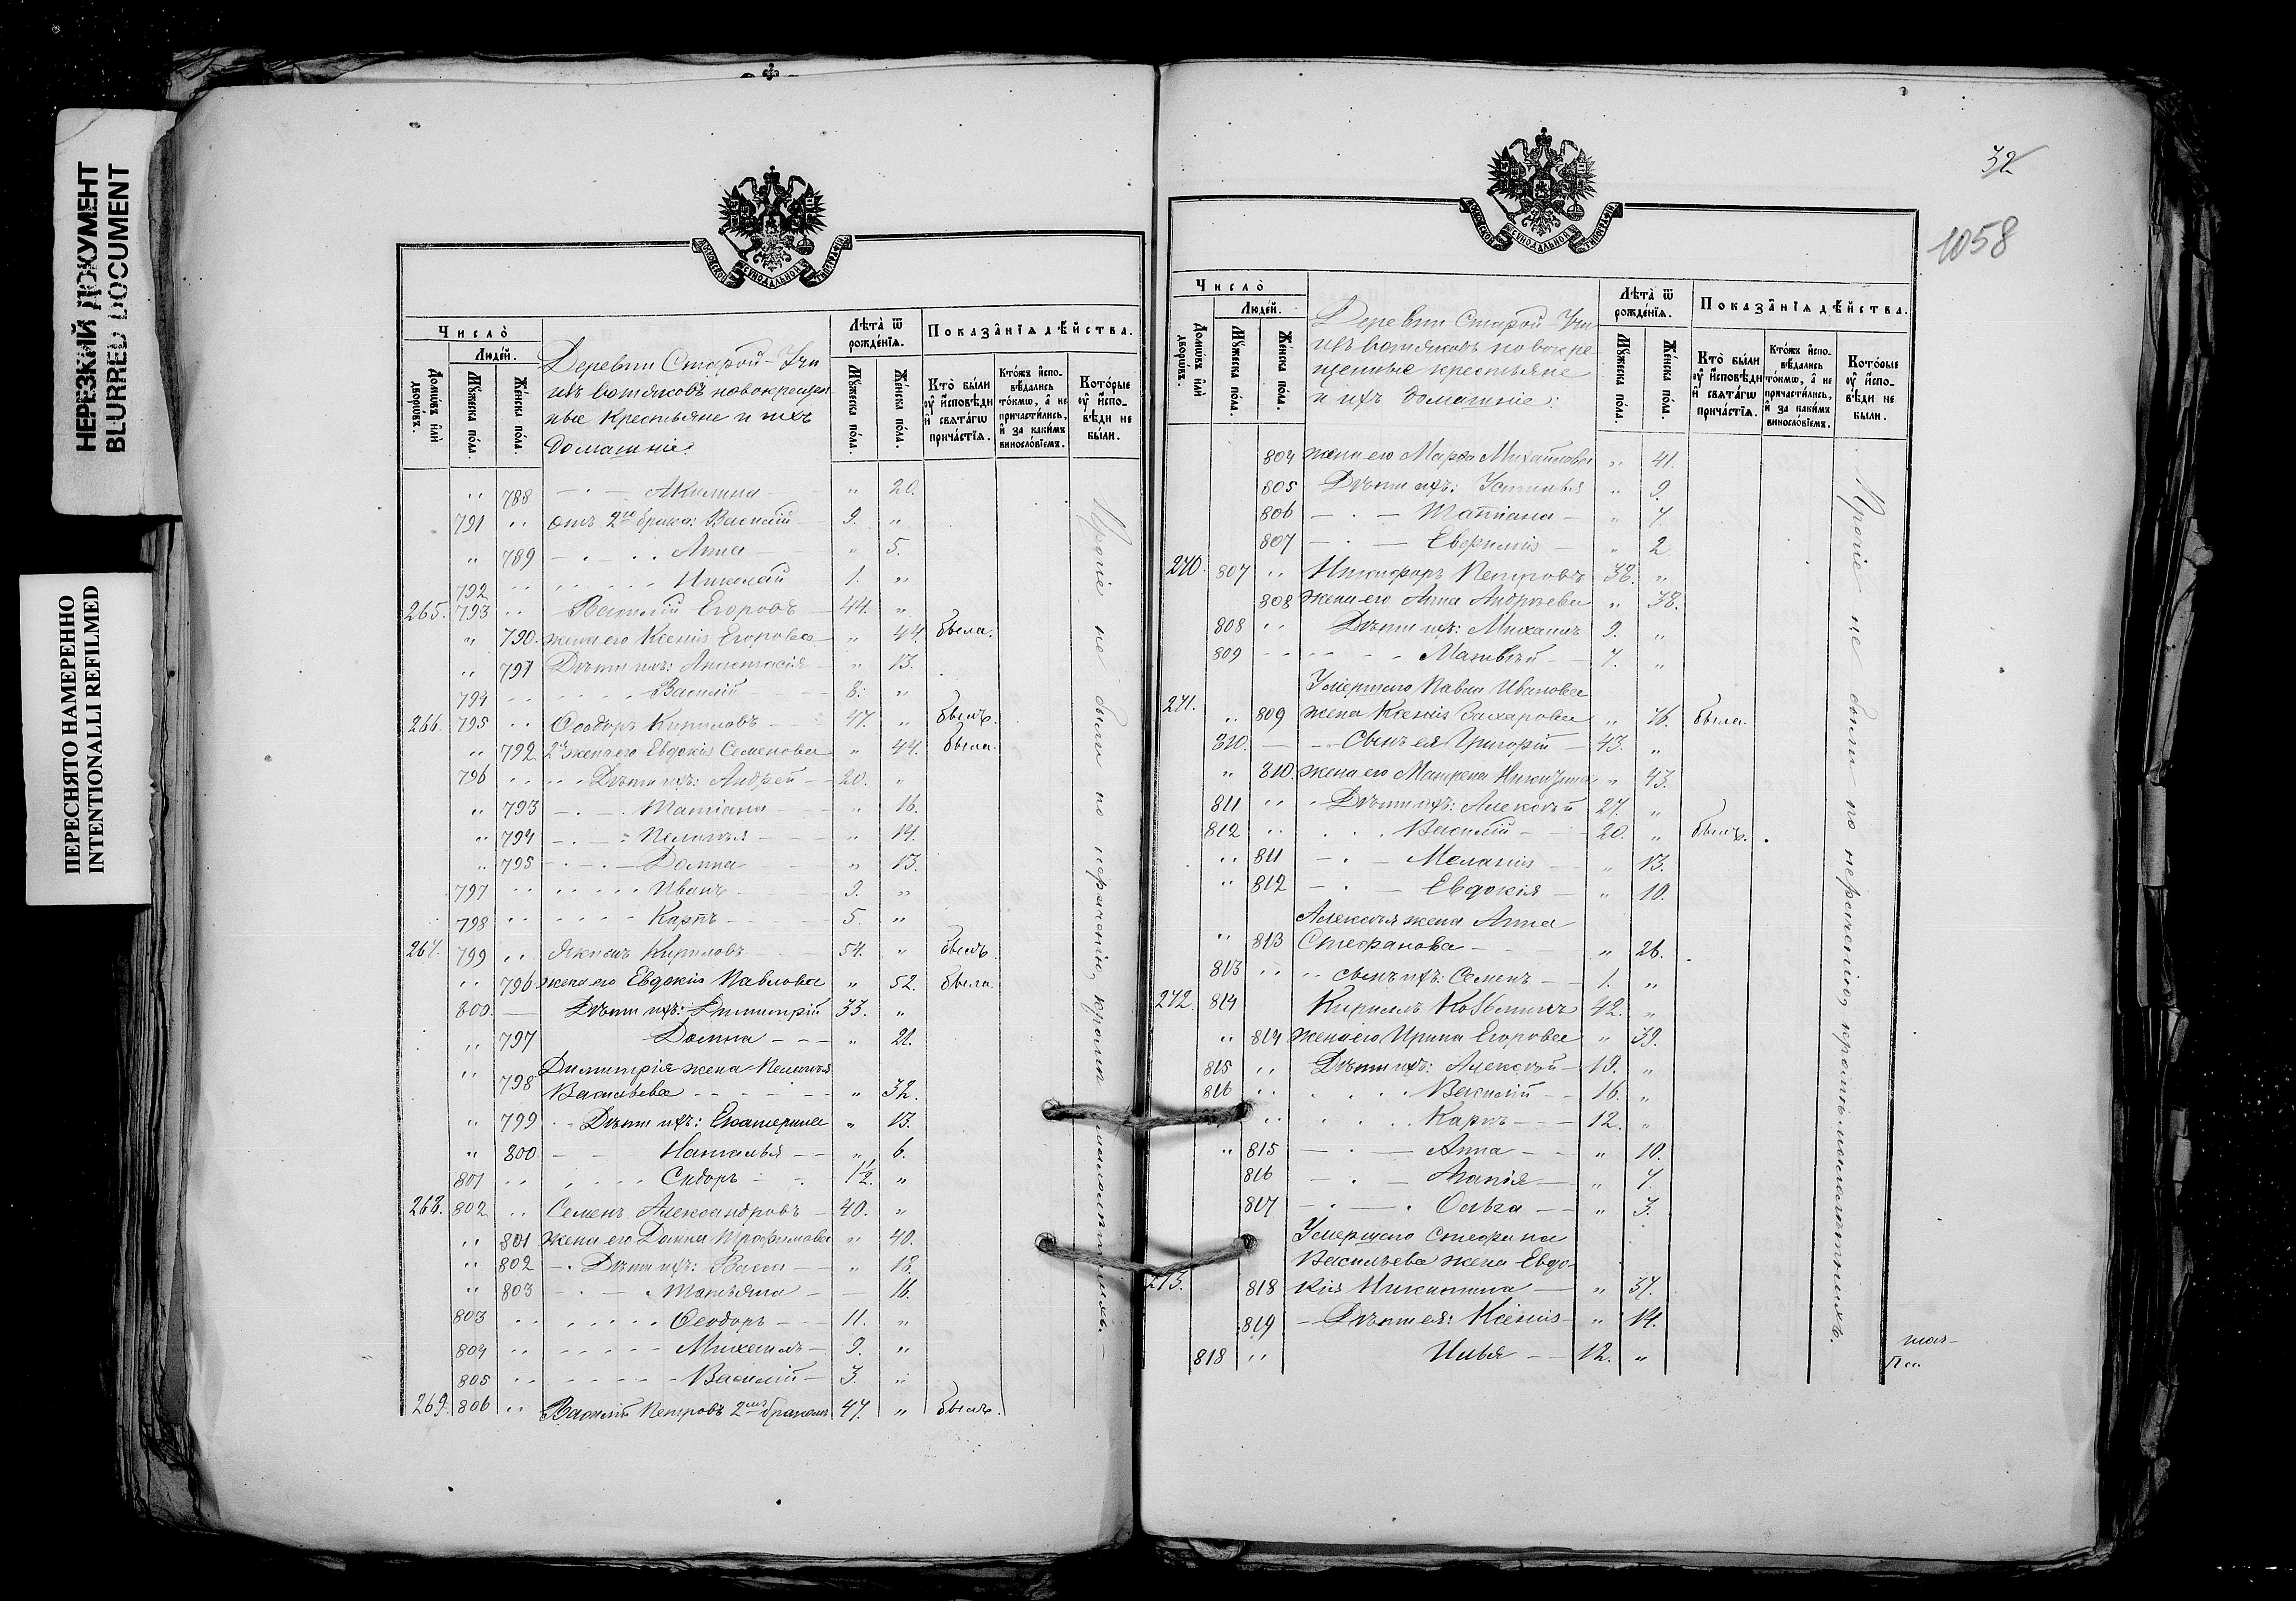 НЕРЕЗКИЙ ДОКУМЕНТ
BLURRED DOCUMENT
ПЕРЕСНЯТО НАМЕРЕННО
INTENTIONALLI REFILMED
МОСКОВСКОЙ СѴНОДАЛЬНОЙ ТИПОГРАФІИ
Число̀
Людей.
Домѡвъ и҆лѝ дворѡвъ.
Мꙋжеска по́ла.
Же́нска по́ла.
Деревни Старой Учи
изъ вотяковъ новокрещен
ные крестьяне и ихъ
домашніе:
Лѣта̀ ѿ рожде́нїѧ.
Мꙋжеска по́ла.
Же́нска по́ла.
Показа̑нїѧ дѣ́йства.
Кто̀ бы́ли ᲂу҆ и҆сповѣди и҆ свѧта́гѡ прича́стїѧ.
Кто́жъ и҆спо-вѣдались то́кмѡ, а҆ не причасти́лись, и҆ за каки́мъ винослові́емъ.
Кото́рые ᲂу҆ и҆спо-вѣди не бы́ли.
" 788 — · — Акилина " 20.
791 " отъ 2го брака: Василій 9. "
" 789 — · · · Анна " 5.
792 " Николай 1. "
265. 793 " Василій Егоровъ 44. "
" 790. жена его Ксенія Егорова " 44. была.
" 791 Дѣти ихъ: Анастасія " 13.
794 " Василій 8. "
266. 795 " Ѳеодоръ Кириловъ 47. " былъ.
" 792 2я жена его Евдокія Семенова " 44. была.
796 " Дѣти ихъ: Андрей 20. "
" 793 — · — Татіана " 16.
" 794 — · — Пелагія " 14.
" 795 — · — Домна " 13.
797 " Иванъ 9. "
798 " Карпъ 5. "
267. 799 " Якимъ Кириловъ 54. " былъ.
" 796 жена его Евдокія Павлова " 52. была.
800. — Дѣти ихъ: Димитрій 33. "
" 797 Домна " 21.
Димитрія жена Пелагія
" 798 Васильева " 32.
" 799 Дѣти ихъ: Екатерина " 13.
" 800 — — Наталья " 6.
801 " Сидоръ 1½. "
268. 802 " Семенъ Александровъ 40. "
" 801 жена его Домна Трофимова " 40.
" 802 Дѣти ихъ: Васса " 18.
" 803 — · — Татьяна — 16.
803 " Ѳеодоръ 11. "
804 " Михаилъ 9. "
805 " Василій 3. "
269. 806 " Василій Петровъ 2мъ бракомъ 47. " былъ.
Прочіе не были по нераченію, кромѣ малолѣтнихъ.
32
1058
МОСКОВСКОЙ СѴНОДАЛЬНОЙ ТИПОГРАФІИ
Число̀
Людей.
Домѡвъ и҆лѝ дворѡвъ.
Мꙋжеска по́ла.
Же́нска по́ла.
Деревни Старой Учи
изъ вотяковъ новокре-
щенные крестьяне
и ихъ домашніе:
Лѣта̀ ѿ рожде́нїѧ.
Мꙋжеска по́ла.
Же́нска по́ла.
Показа̑нїѧ дѣ́йства.
Кто̀ бы́ли ᲂу҆ и҆сповѣди и҆ свѧта́гѡ прича́стїѧ.
Кто́жъ и҆спо-вѣдались то́кмѡ, а҆ не причасти́лись, и҆ за каки́мъ винослові́емъ.
Кото́рые ᲂу҆ и҆спо-вѣди не бы́ли.
804 жена его Марѳа Михайлова " 41.
805 Дѣти ихъ: Устинья " 9.
806 — · — Татіана " 7.
807 — · — Евфимія " 2.
270. 807 " Никифоръ Петровъ 38. "
808 жена его Анна Андреева " 38.
808 " Дѣти ихъ: Михаилъ 9. "
809 Матвѣй 7. "
Умершаго Павла Иванова
271. " 809 жена Ксенія Захарова " 76. была.
810. — Сынъ ея Григорій 43. "
" 810. жена его Матрена Никитина " 43.
811 " Дѣти ихъ: Алексѣй 27. "
812 " Василій 20. " былъ.
" 811 — · — Меланія " 13.
" 812 — · — Евдокія " 10.
Алексѣя жена Анна
" 813 Стефанова " 26.
813 " сынъ ихъ: Семенъ 1. "
272. 814 Кириллъ Козьминъ 42. "
" 814 жена его Ирина Егорова " 39.
815 " Дѣти ихъ: Алексѣй 19. "
816 " Василій 16. "
" Карпъ 12. "
" 815 — · — Анна " 10.
816 — · — Агапія " 7.
817 — · — Ольга " 3.
Умершаго Стефана
Васильева жена Евдо-
273. 818 кія Никитина " 37.
819 Дѣти ея: Ксенія " 14.
818 " Илья 12. "
Прочіе не были по нераченію, кромѣ малолѣтнихъ.